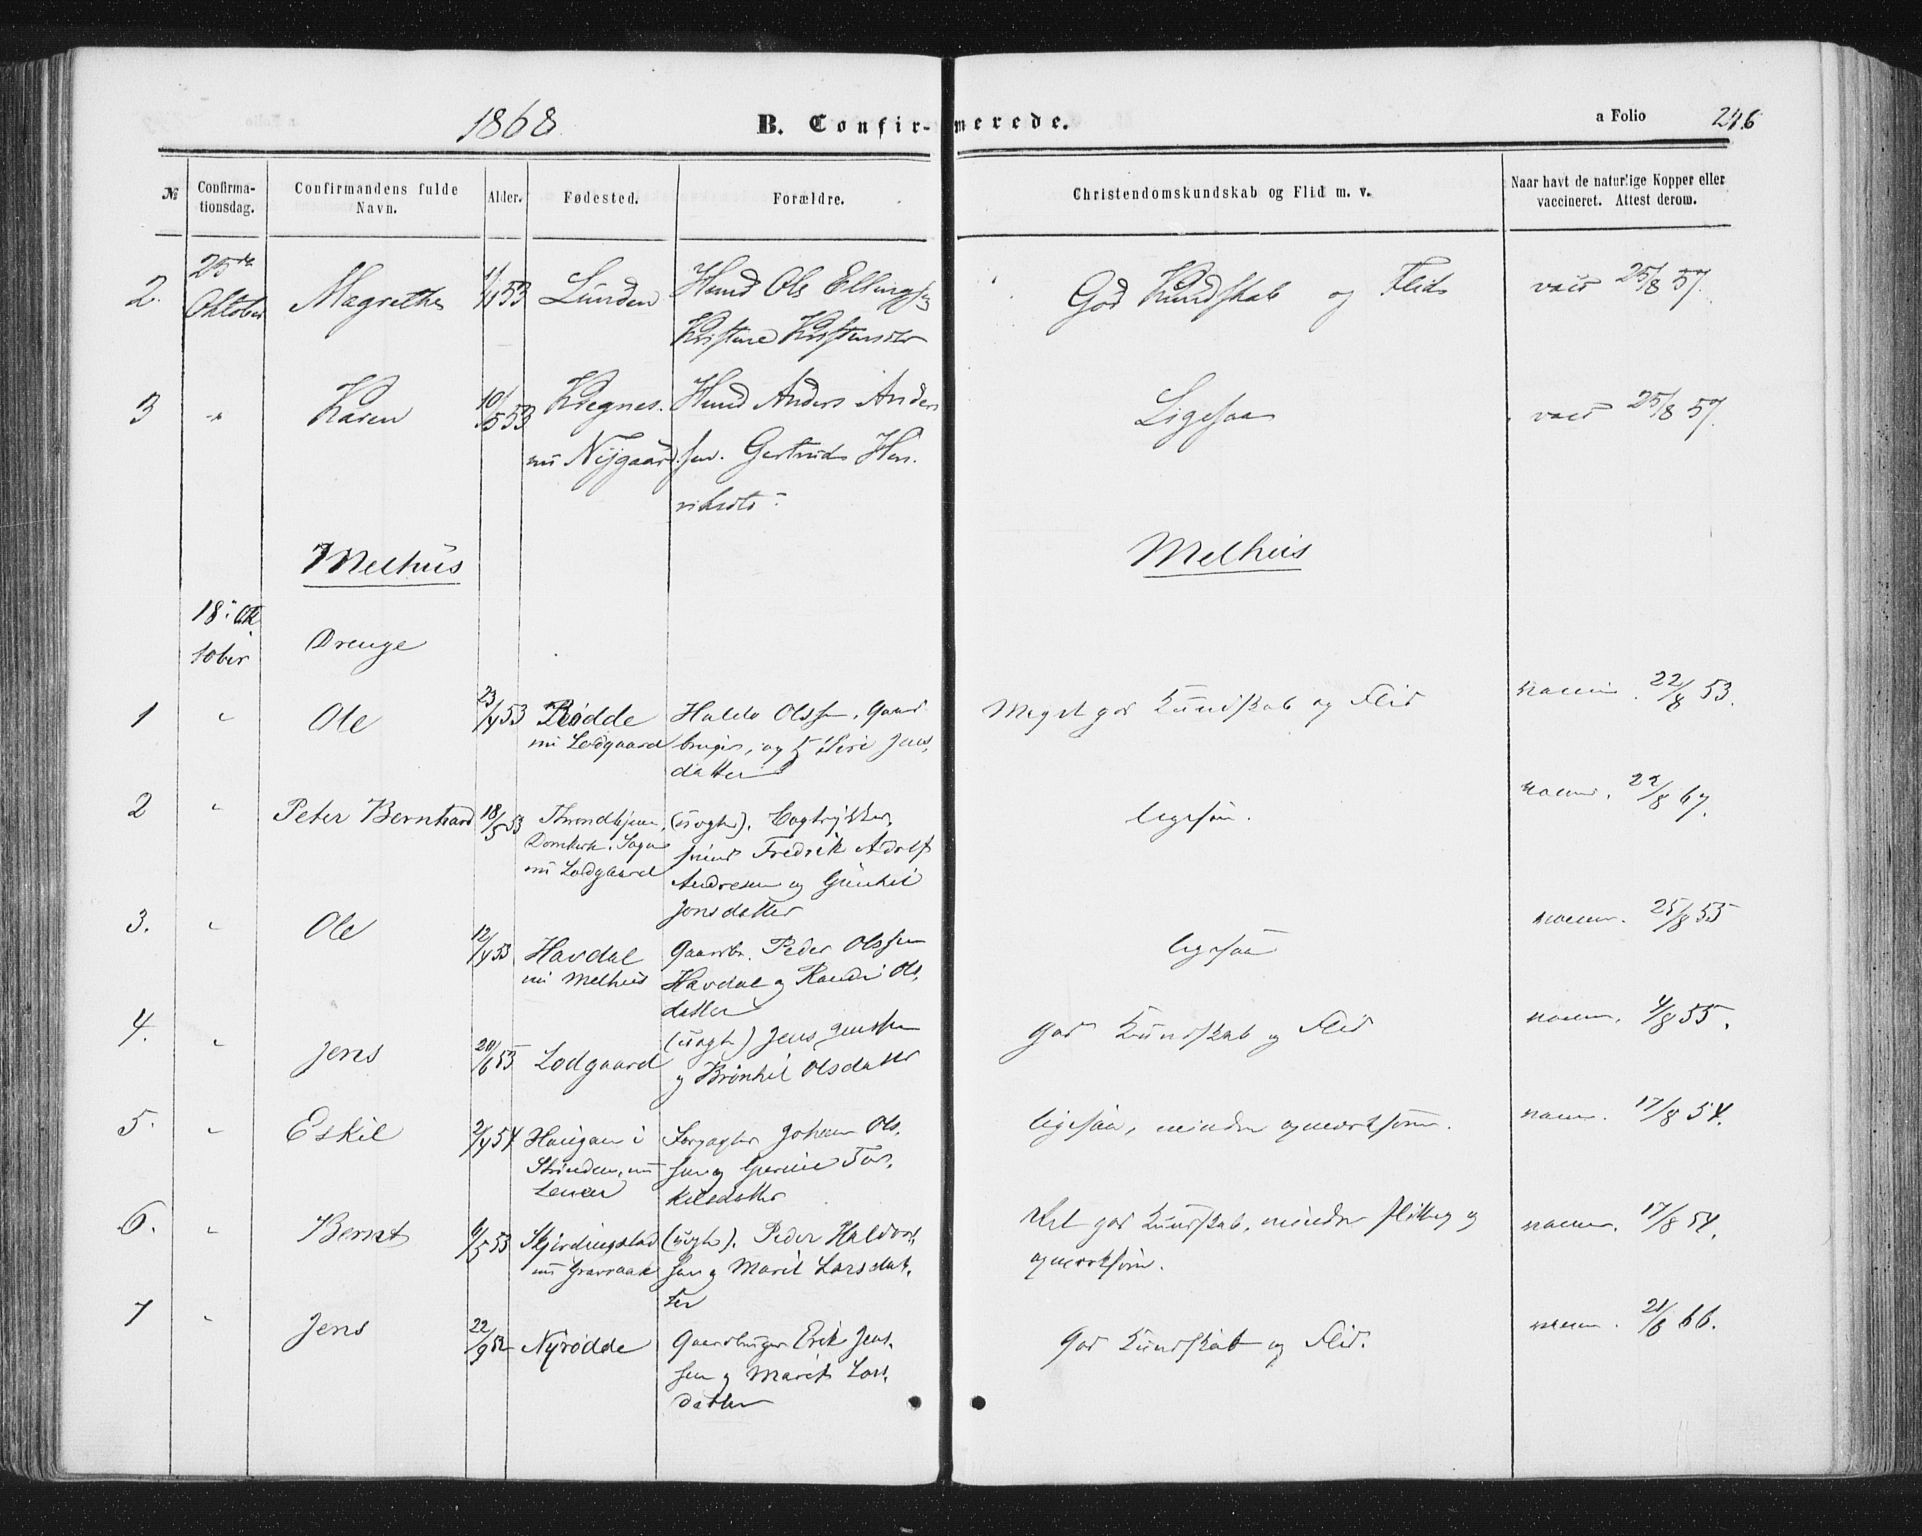 1868 B. Confirmerede. a Folio 246
№ Confirmationsdag. Confirmandens fulde Navn. Alder. Fødested. Forældre. Christendomskundskab og Flid m. v. Naar havt de naturlige Kopper eller vaccineret. Attest derom.
2. 25de Oktober Magrethe 53 Lunden Huusmd Ols
Kristensdtr God Kundskab og Flid vacc 25/8 57.
3 " Karen 10/5 53 nu Nygaard Anders Andersen. Gertrud Henriksdtr Ligesaa vacc 25/8 57.
Melhus Melhus
18. Oktober Drenge
1 " Ole 23/4 53 Rødde
nu Lodgaard Olssen, Gaardbruger, og Jensdatter Meget god Kundskab og Flid vaccin. 22/8 53.
2 " Peter Bernhard 18/5 53 Throndhjem, Domkirk. Sogn
nu Lodgaard (uægte). Bogtrykkersvend Fredrik Adolf
Andresen og Gunhil
Jonsdatter ligesaa. vaccin. 22/8 67.
3. " Ole 12/4 53 Havdal
nu Melhus Gaardbr. Peder Olssen
Havdal og Randi Olsdatter ligesaa vaccin. 25/8 55
4. " Jens 20/6 53 Lodgaard (uægte) Jens Jenssen
og Brønhil Olsdatter god Kundskab og Flid vaccin. 4/8 55.
5. " Eskil 2/4 54 Haugan i
Strinden, nu Forpagter Johan Olssen og Torkelsdatter ligesaa, mindre opmærksom. vaccin. 17/8 54.
6. " Bernt 53 Skjerdingstad (uægte). Peder Haldorssen og Marit Larsdatter god Kundskab, mindre flittig og
opmærksom. vaccin. 17/8 54.
7 " Jens 22/9 52 Nyrødde Gaardbruger Erik Jenssen og Marit Larsdatter God Kundskab og Flid. vaccin. 21/8 66.